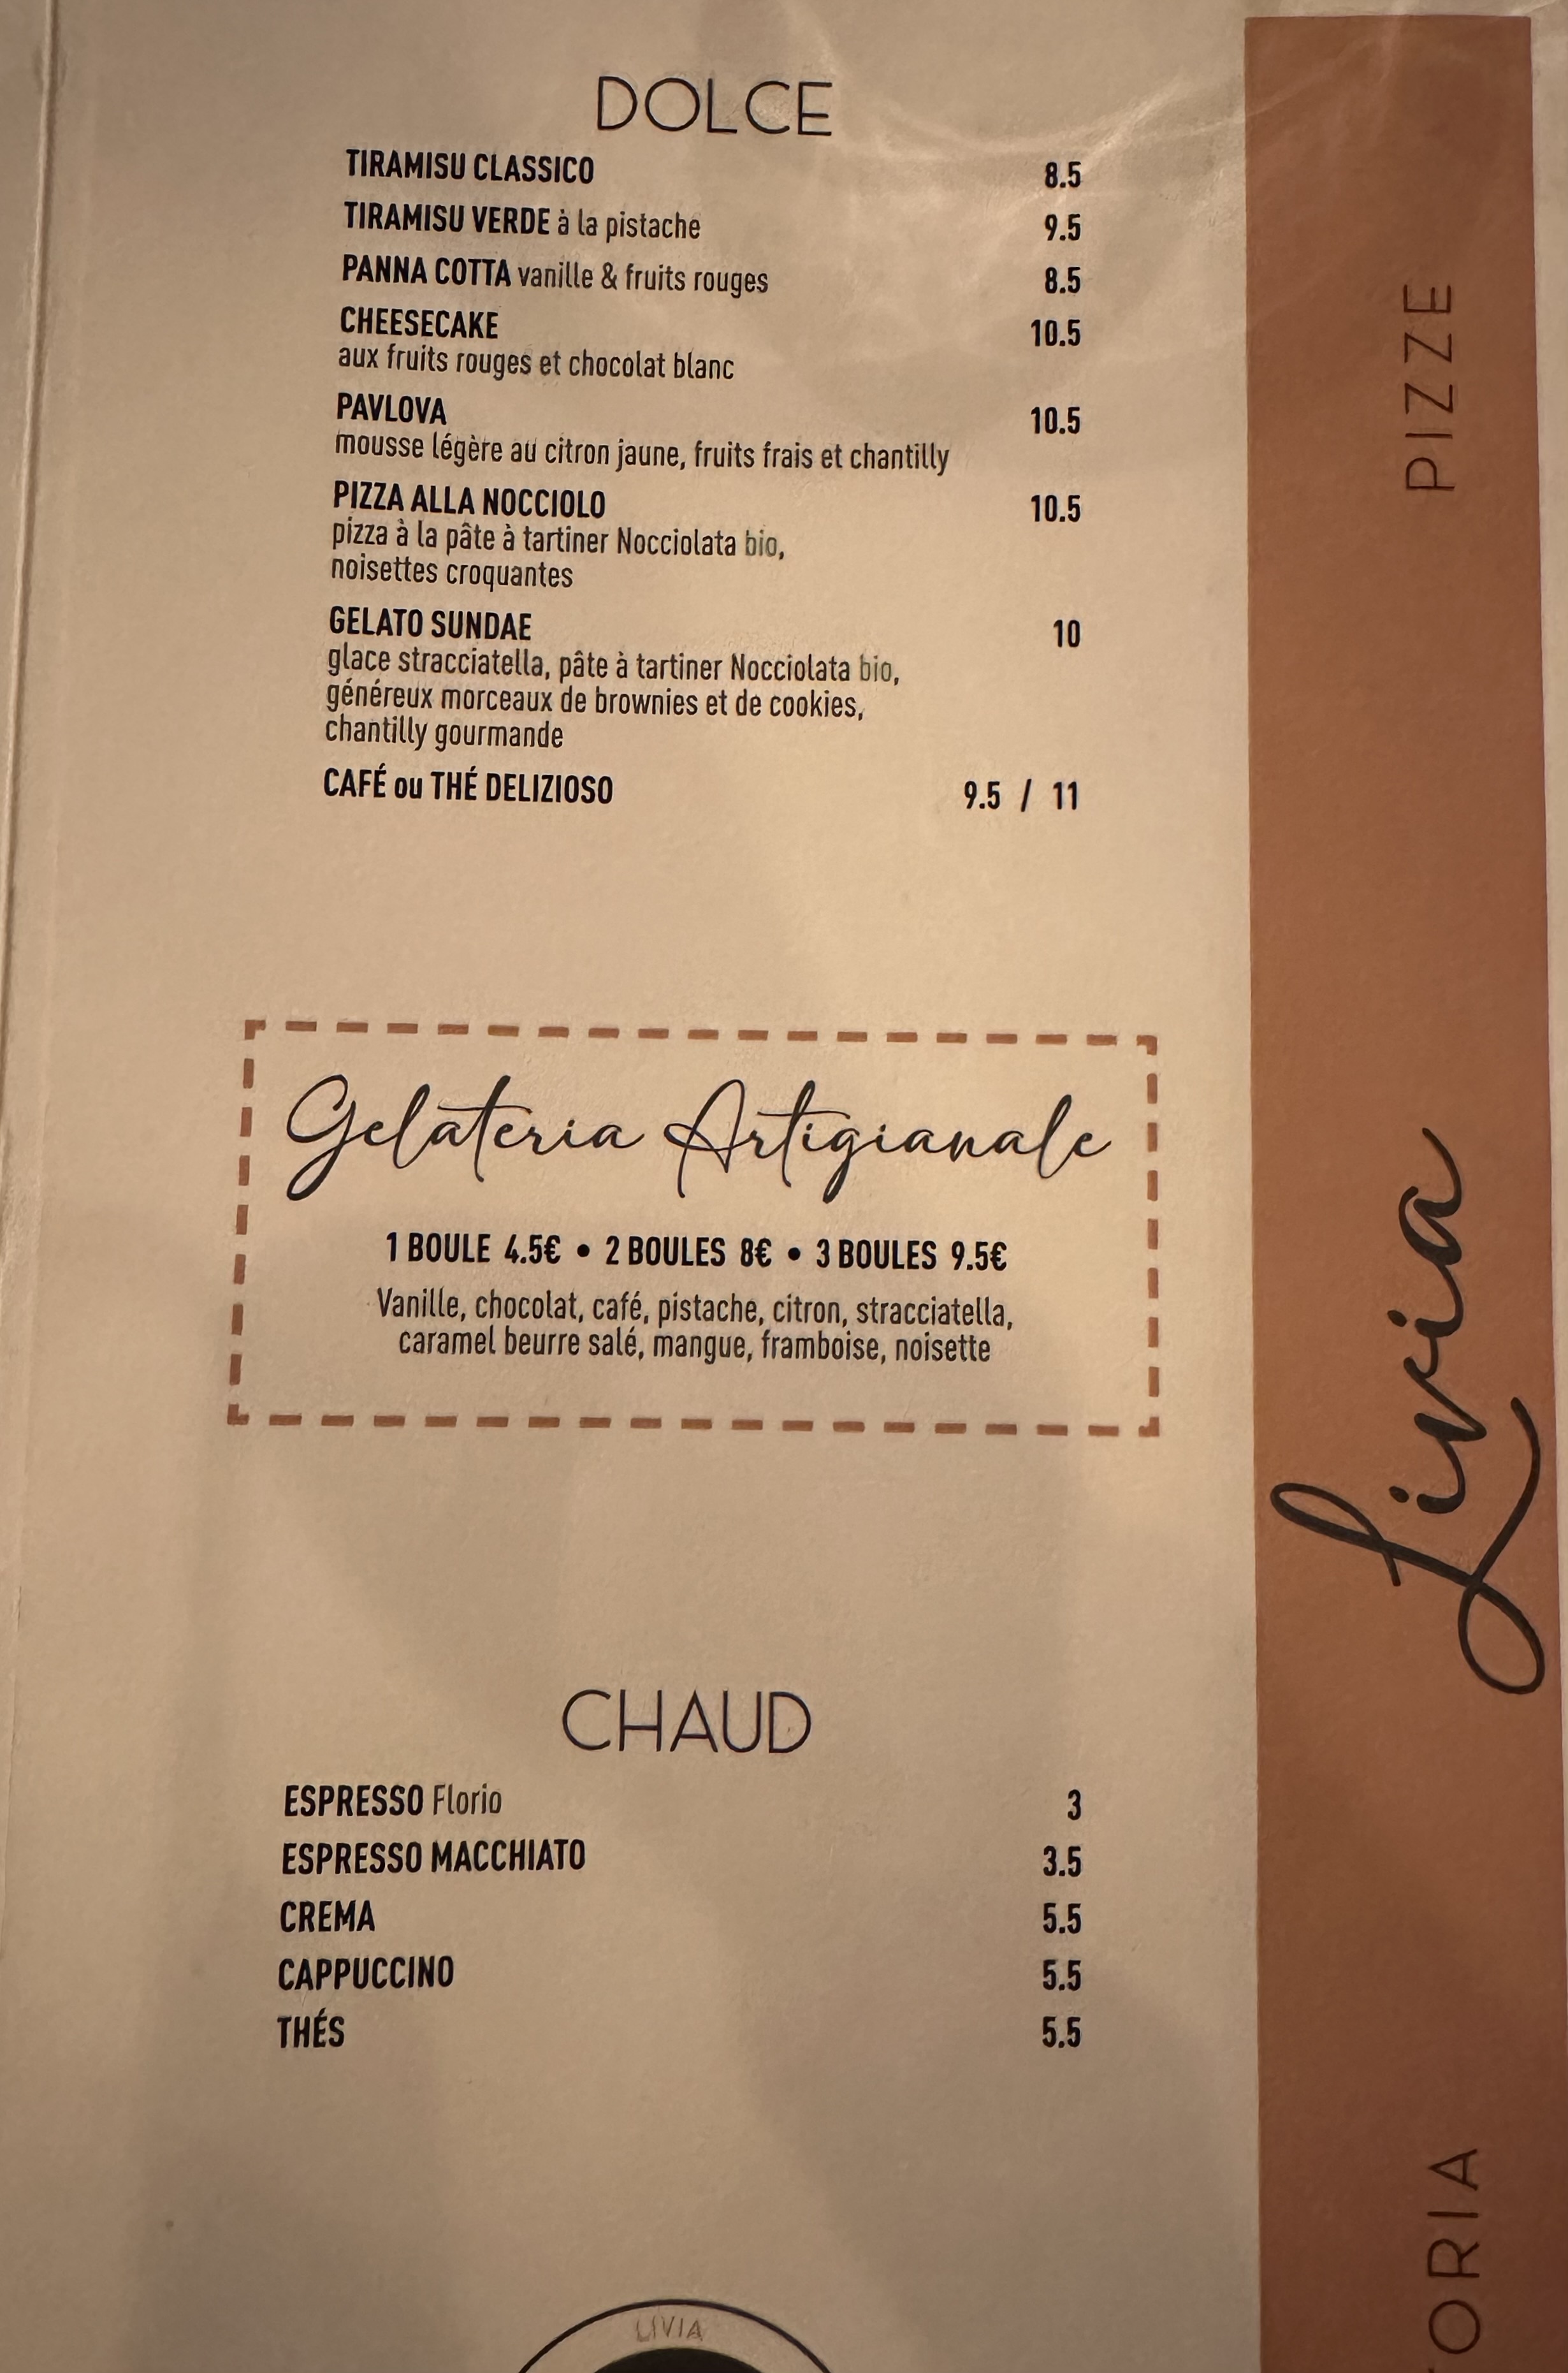 DOLCE
TIRAMISU CLASSICO 8.5
TIRAMISU VERDE à la pistache 9.5
PANNA COTTA vanille & fruits rouges 8.5
CHEESECAKE 10.5
aux fruits rouges et chocolat blanc
PAVLOVA 10.5
mousse légère au citron jaune, fruits frais et chantilly
PIZZA ALLA NOCCIOLO 10.5
pizza à la pâte à tartiner Nocciolata bio,
noisettes croquantes
GELATO SUNDAE 10
glace stracciatella, pâte à tartiner Nocciolata bio,
généreux morceaux de brownies et de cookies,
chantilly gourmande
CAFÉ ou THÉ DELIZIOSO 9.5 / 11
Gelateria Artigianale
1 BOULE 4.5€ • 2 BOULES 8€ • 3 BOULES 9.5€
Vanille, chocolat, café, pistache, citron, stracciatella,
caramel beurre salé, mangue, framboise, noisette
CHAUD
ESPRESSO Florio 3
ESPRESSO MACCHIATO 3.5
CREMA 5.5
CAPPUCCINO 5.5
THÉS 5.5
LIVIA
PIZZE
Livia
ORIA